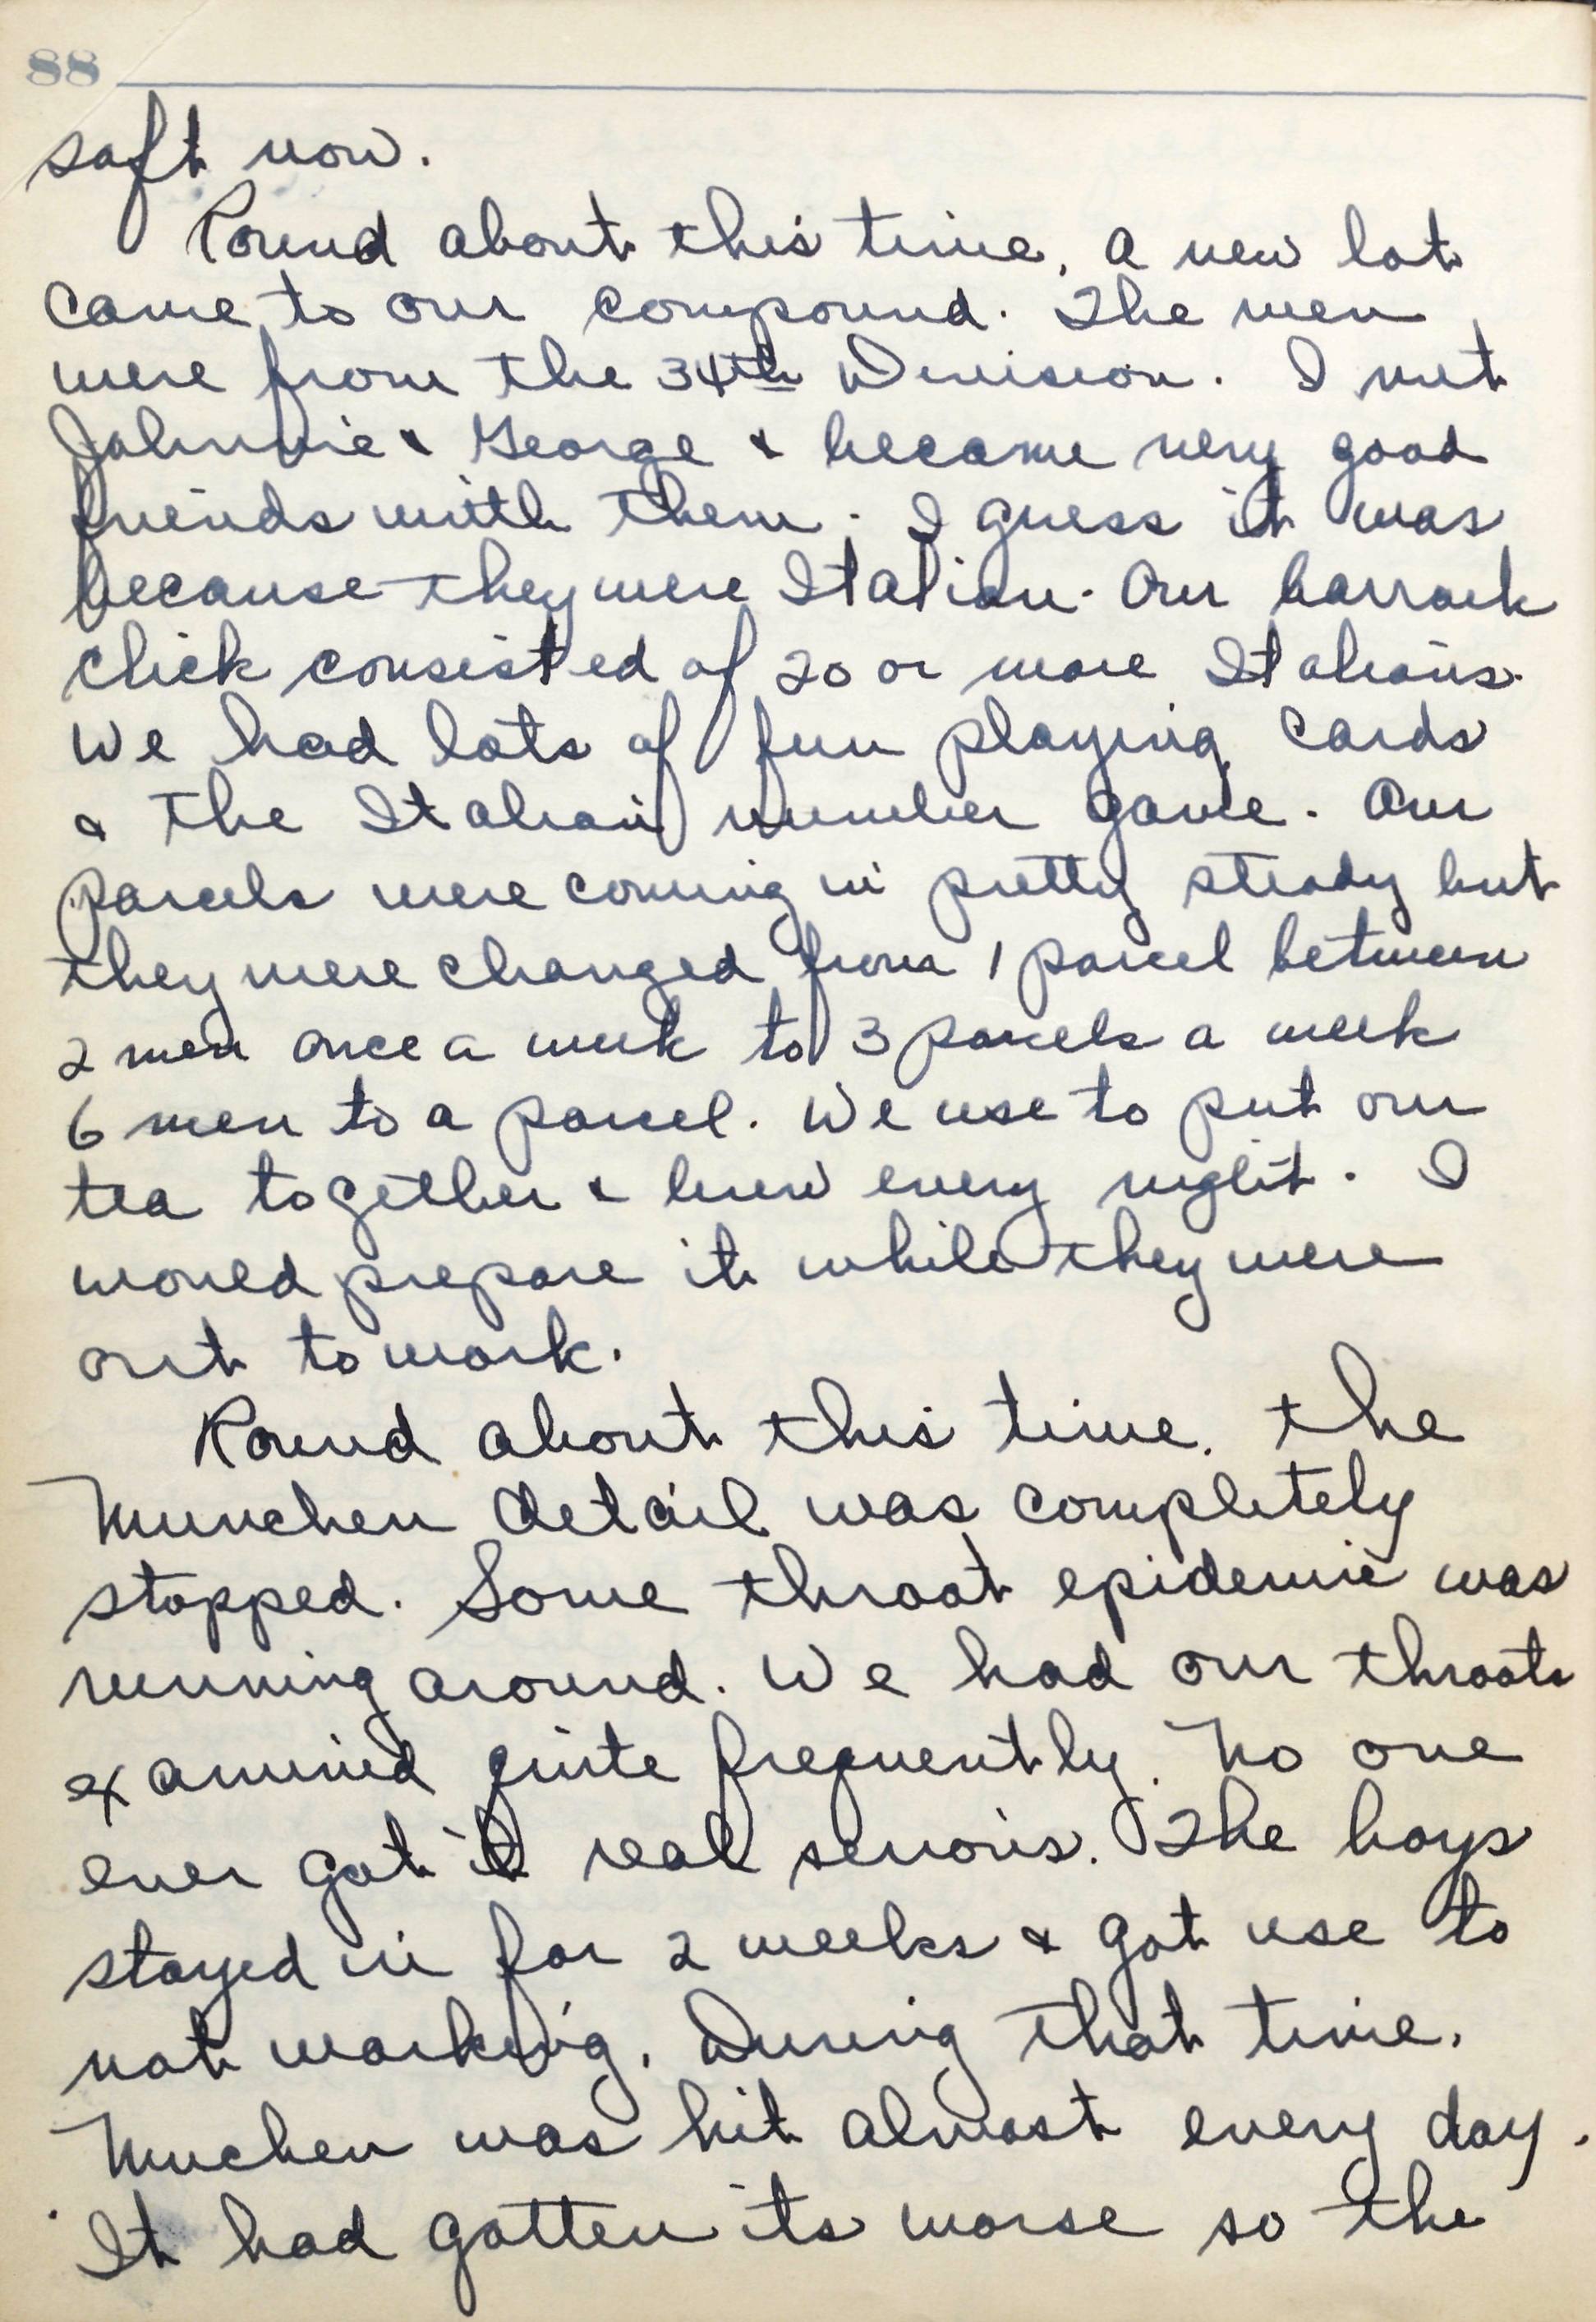 88
soft now.
Round about this time, a new lot
came to our compound. The men
were from the 34th Division. I met
Johnnie & George & became very good
friends with them. I guess it was
because they were Italian. Our barrack
click consisted of 20 or more Italians.
We had lots of fun playing cards
& the Italian number game. Our
parcels were coming in pretty steady but
they were changed from 1 parcel between
2 men once a week to 3 parcels a week
6 men to a parcel. We use to put our
tea together & brew every night. I
would prepare it while they were
out to work.
Round about this time, the
Munchen detail was completely
stopped. Some throat epidemic was
running around. We had our throats
examined quite frequently. No one
ever got it real serious. The boys
stayed in for 2 weeks & got use to
not working. During that time,
Muchen was hit almost every day.
It had gotten its worse so the